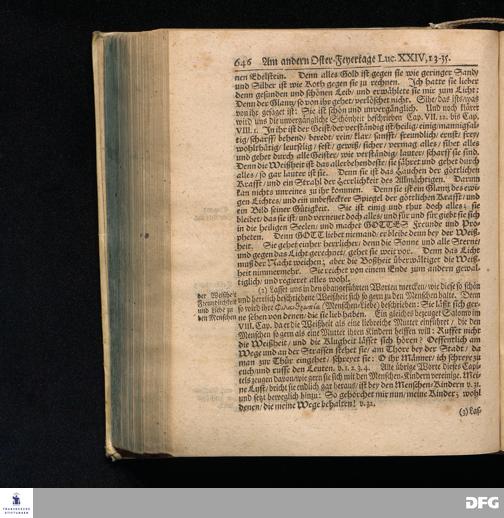 646 Am andern Oster-Feyertage Luc. XXIV, 13-35.
nen Edelstein. Denn alles Gold ist gegen sie wie geringer Sandy
und Silber ist wie Koth gegen sie zu rechnen. Ich hatte sie lieber
denn gesunden und schönen Leib/ und erwählete sie mir zum Licht:
Denn der Glantz/ so von ihr gehet/ verlöschet nicht. Sihe/ das ists/ was
von ihr gesaget ist: Sie ist schön und unvergänglich. Und noch klärer
wird uns die unvergängliche Schönheit beschrieben Cap. VII. 22. bis Cap.
VIII. 1. In ihr ist der Geist/ der verständig ist/ heilig/ einig/ mannigfal-
tig/ scharff/ behend/ beredt/ rein/ klar/ sanfft/ freundlich/ ernst/ frey/
wohlthätig/ leutselig/ fest/ gewiß/ sicher/ vermag alles/ sihet alles
und gehet durch alle Geister/ wie verständig/ lauter/ scharff sie sind.
Denn die Weißheit ist das allerbehendeste/ sie fähret und gehet durch
alles/ so gar lauter ist sie. Denn sie ist das Hauchen der göttlichen
Krafft/ und ein Strahl der Herrlichkeit des Allmächtigen. Darum
kan nichts unreines zu ihr kommen. Denn sie ist ein Glantz des ewi-
gen Lichtes/ und ein unbefleckter Spiegel der göttlichen Krafft/ und
ein Bild seiner Gütigkeit. Sie ist einig und thut doch alles; sie
bleibet/ das sie ist/ und verneuet doch alles/ und für und für giebt sie sich
in die heiligen Seelen/ und machet GOTTES Freunde und Pro-
pheten. Denn GOTT liebet niemand/ er bleibe denn bey der Weiß-
heit. Sie gehet einher herrlicher/ denn die Sonne und alle Sterne/
und gegen das Licht gerechnet/ gehet sie weit vor. Denn das Licht
muß der Nacht weichen; aber die Boßheit überwältiget die Weiß-
heit nimmermehr. Sie reichet von einem Ende zum andern gewal-
tiglich/ und regieret alles wohl.
der Weißheit
Freundlichkeit
und Liebe zu
den Menschen
(2) Lasset uns in den obangeführten Worten mercken/ wie diese so schön
und herrlich beschriebene Weißheit sich so gern zu den Menschen halte. Denn
so wird ihre (Menschen-Liebe) beschrieben: Sie lässt sich ger-
ne sehen von denen/ die sie lieb haben. Ein gleiches bezeuget Salomo im
VIII. Cap. da er die Weißheit als eine liebreiche Mutter einführet/ die den
Menschen so gern als eine Mutter ihren Kindern helffen will: Ruffet nicht
die Weißheit/ und die Klugheit lässet sich hören? Oeffentlich am
Wege und an der Strassen stehet sie/ am Thore bey der Stadt/ da
man zur Thür eingehet/ schreyet sie: O ihr Männer/ ich schreye zu
euch/ und ruffe den Leuten. v. 1. 2. 3. 4. Alle übrige Worte dieses Capi-
tels zeugen davon/ wie gern sie sich mit den Menschen-Kindern vereinige. Mei-
ne Lust/ bricht sie endlich gar heraus/ ist bey den Menschen-Kindern v. 31.
und setzt beweglich hinzu: So gehorchet mir nun/ meine Kinder; wohl
denen/ die meine Wege behalten! v. 32.
(3) Las-
FRANCKESCHE
STIFTUNGEN
DFG